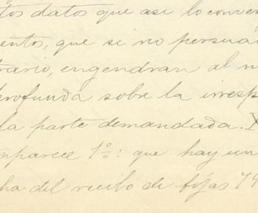 los datos que así lo conven
ento, que si no persuad
trario, engendran al m
profunda sobre la irresp
la parte demandada.
mparece 1º: que hay un
ha del recibo de fojas 74